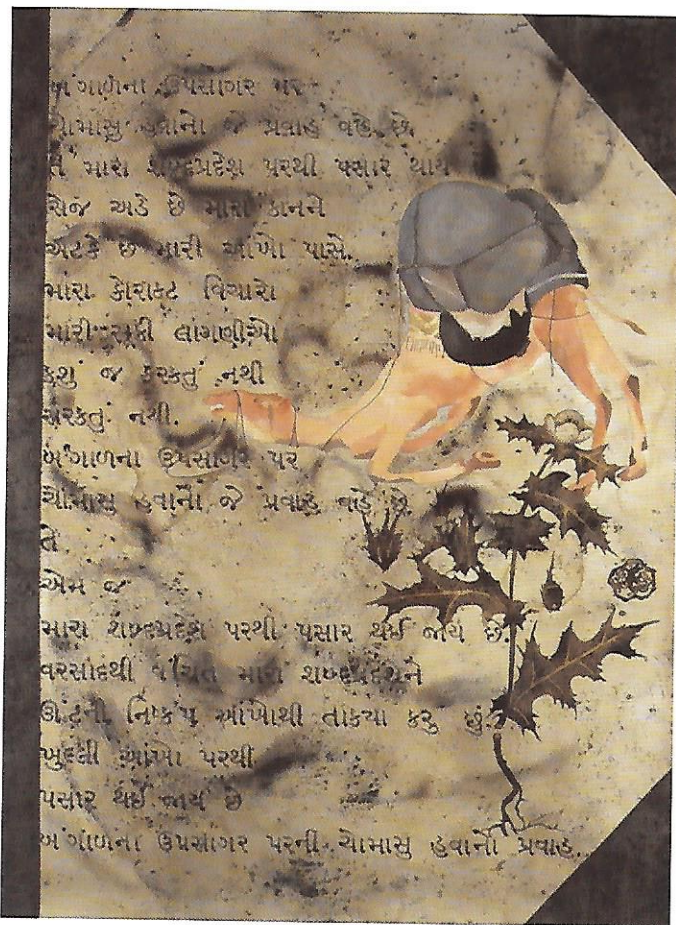 બંગાળના ઉપસાગર પર
ચોમાસુ હવાનો જે પ્રવાહ વહે છે
તે મારા શબ્દપ્રદેશ પરથી પસાર થાય
સ્હેજ અડે છે મારા કાનને
અટકે છે મારી આંખો પાસે.
મારા કોરાકટ વિચારો
મારી સૂકી લાગણીઓ
કશું જ ફરકતું નથી
સરકતું નથી.
બંગાળના ઉપસાગર પર
ચોમાસુ હવાનો જે પ્રવાહ વહે છે
તે
એમ જ
મારા શબ્દપ્રદેશ પરથી પસાર થઈ જાય છે.
વરસાદથી વંચિત મારા શબ્દપ્રદેશને
ઊંટની નિષ્કંપ આંખોથી તાકયા કરું છું.
ખુદની આંખો પરથી
પસાર થઈ જાય છે
બંગાળના ઉપસાગર પરની ચોમાસુ હવાનો પ્રવાહ.